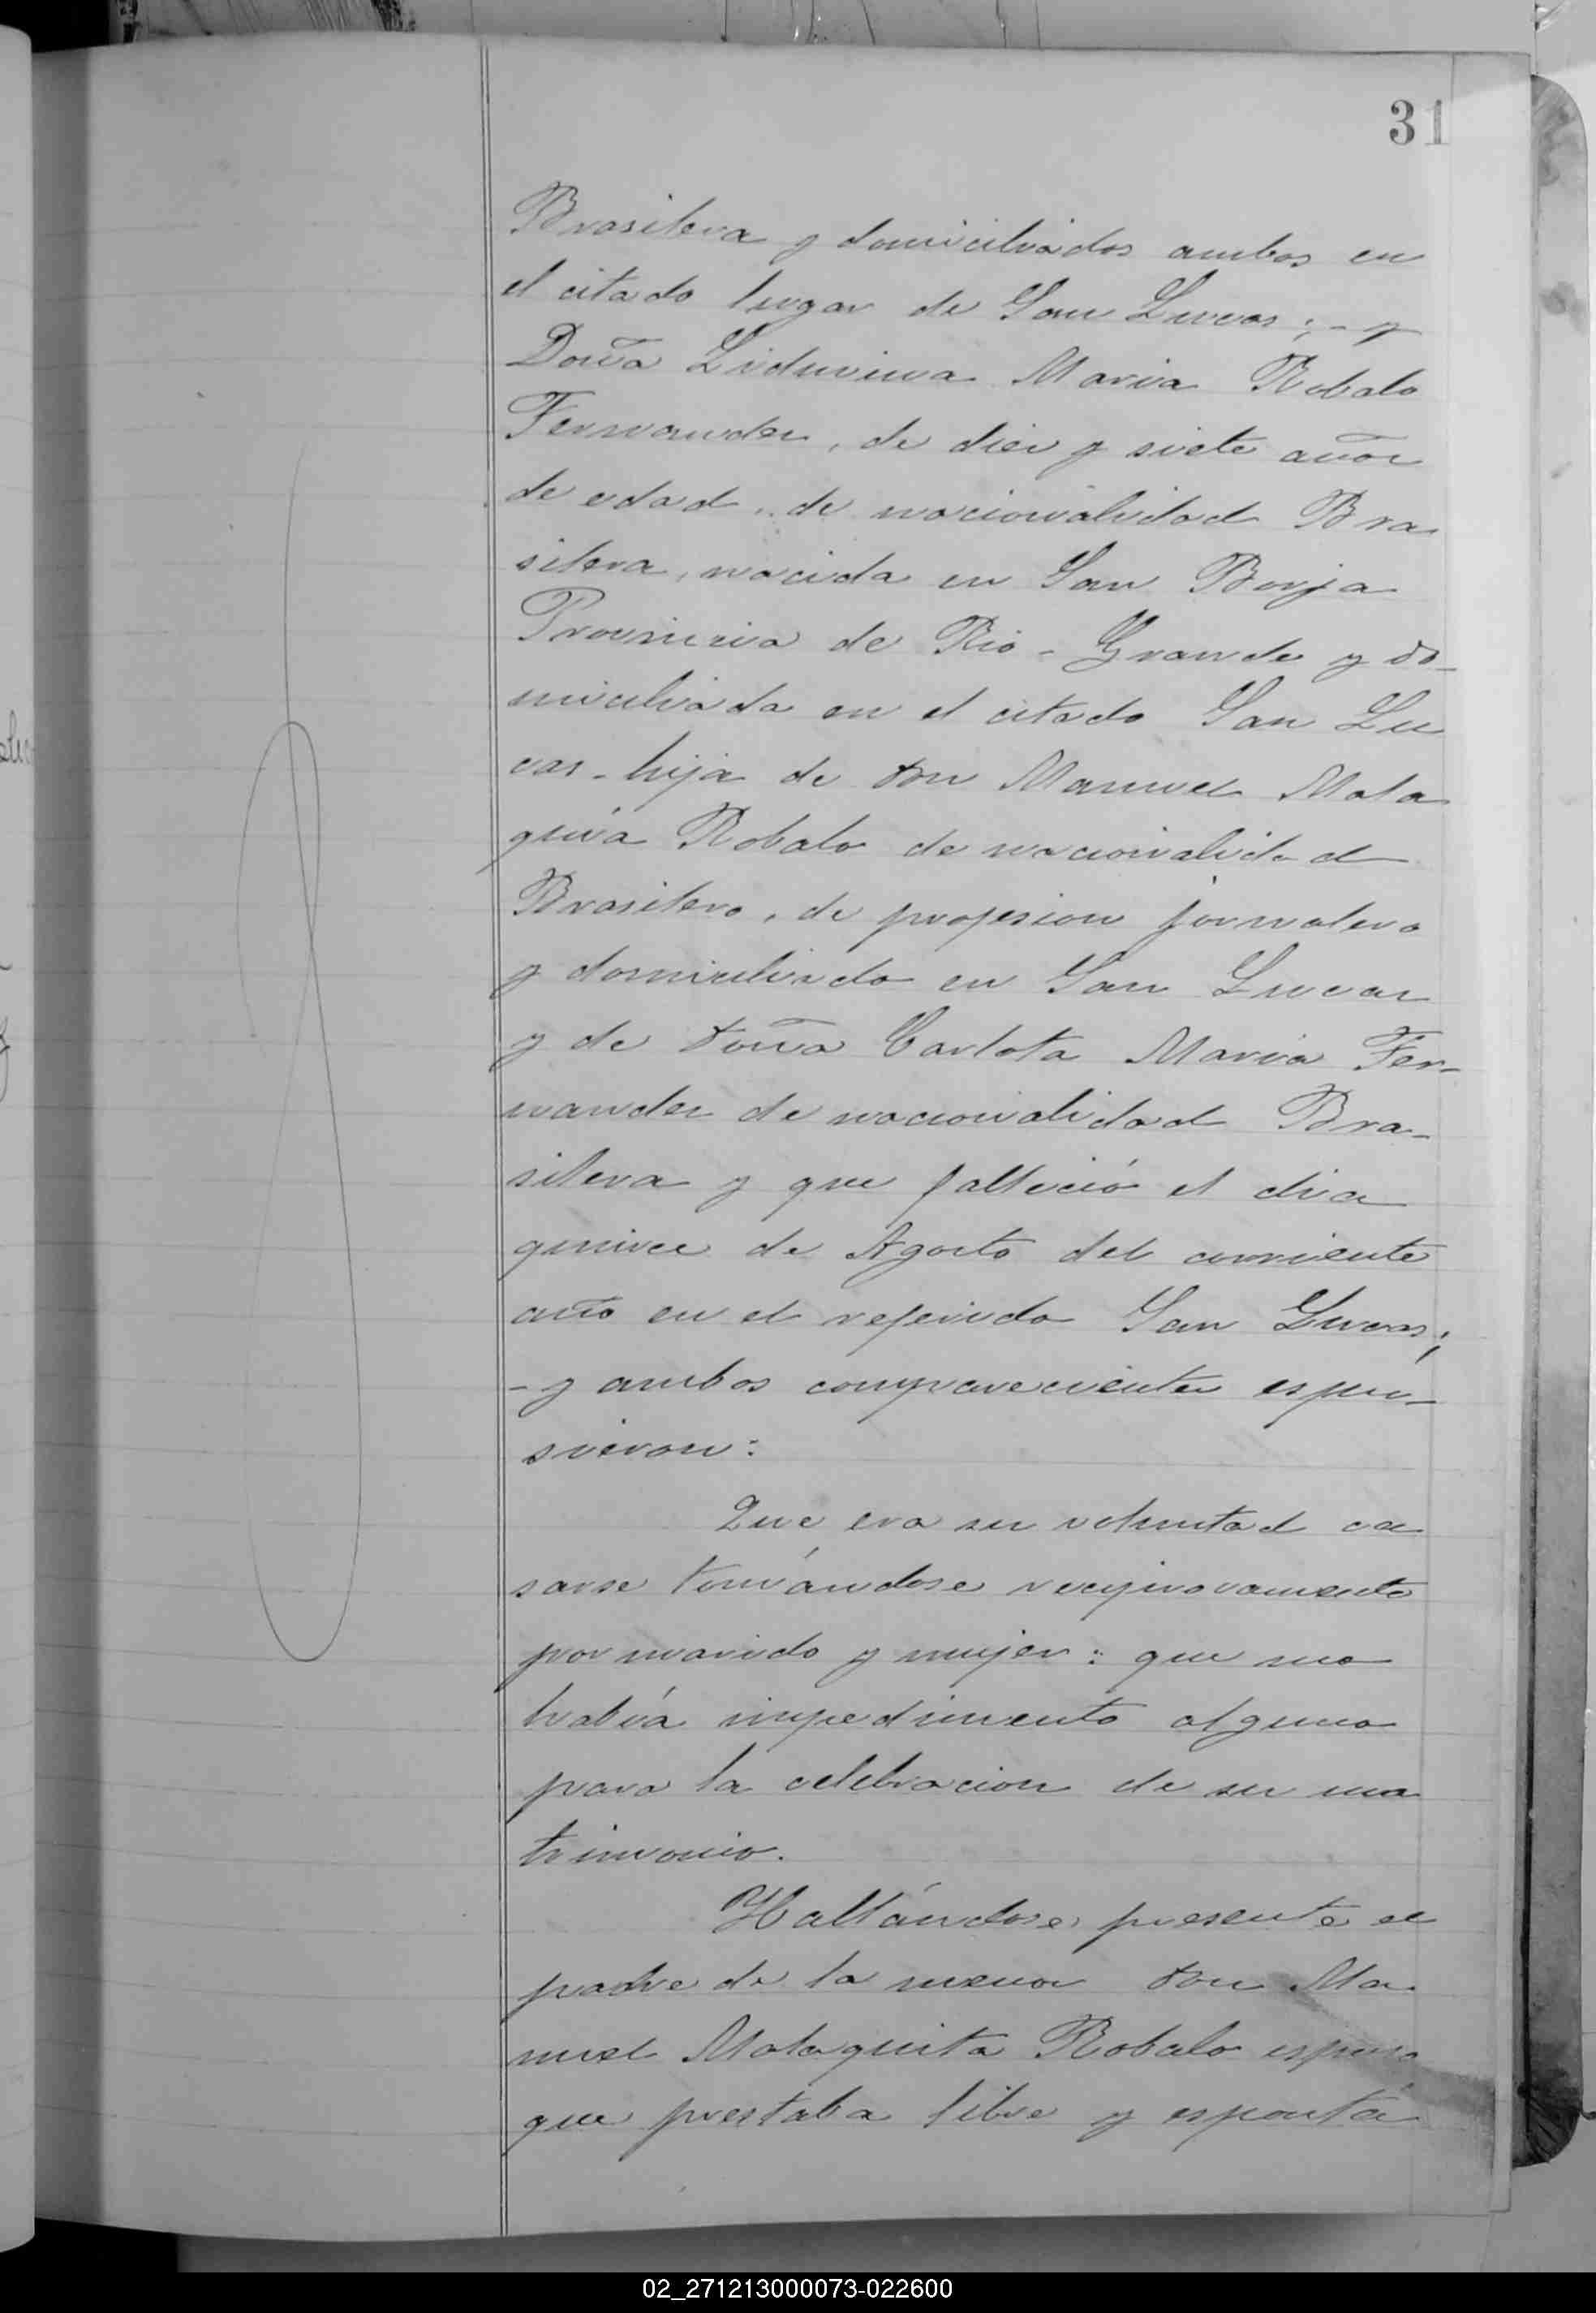 31
Brasilera y domiciliados ambos en
el citado lugar de San Lucas; - y
Doña Liduvina Maria Robalo
Fernandez, de diez y siete años
de edad, de nacionalidad Bra
silera, nacida en San Borja
Provincia de Rio - Grande y do-
miciliada en el citado San Lu
cas - hija de don Manuel Mala
quia Robalo de nacionalidad
Brasilero, de profesion jornalero
y domiciliado en San Lucas
y de doña Carlota Maria Fer-
nandez de nacionalidad Bra-
silera y que falleció el dia
quince de Agosto del corriente
año en el referido San Lucas;
- y ambos comparecientes espu-
sieron:
Que era su voluntad ca
sarse tomándose reciprocamente
por marido y mujer: que no
habia impedimento alguno
para la celebracion de su ma
trimonio.
Hallándose presente el
padre de la menor don Ma
nuel Malaquita Robalo espuso
que prestaba libre y espontá
02_271213000073-022600